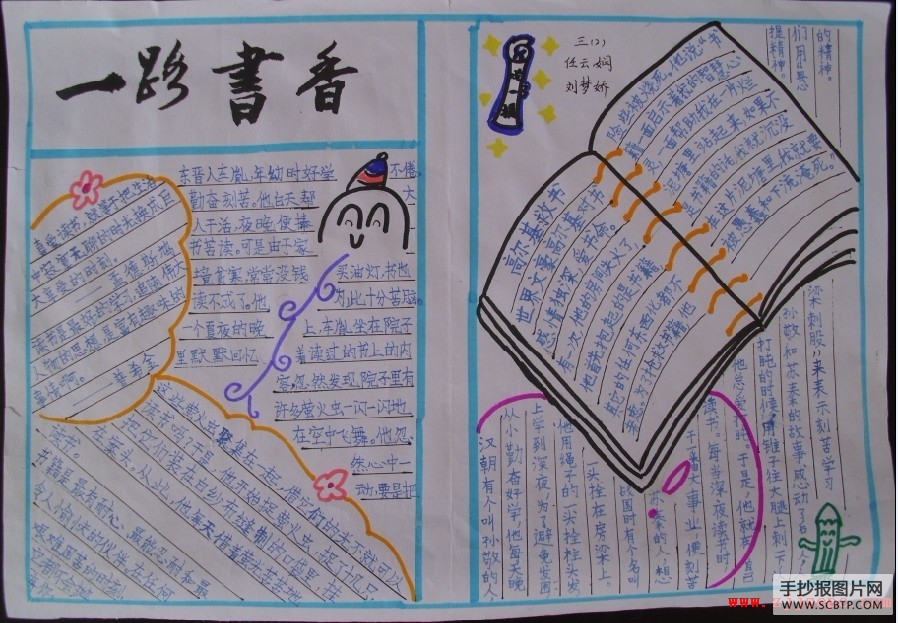 一路書香
真爱读书,就等于把生活
中寂寞无聊的时光换成巨
大享受的时刻。
——孟德斯鸠
读书是最好的学习,追随伟大
人物的思想,是富有趣味的
事情啊。
东晋人车胤,年幼时好学不倦,
勤奋刻苦。他白天帮大
人干活,夜晚便捧
书苦读。可是由于家
境贫寒,常常没钱买油灯,书也
读不成了。他为此十分苦恼。
一个夏夜的晚上,车胤坐在院子
里默默回忆着读过的书上的内
容,忽然发现院子里有
许多萤火虫一闪一闪地
在空中飞舞。他忽
然心中一
动,要是把
这些萤火虫聚集在一起,借它们的光不就可以
读书吗?于是,他开始捉萤火虫,捉了十几只,
把它们装在白纱布缝制的口袋里,挂
在案头。从此,他每天借着萤光苦苦地
读书。
书籍是最有耐心、最能忍耐和最
令人愉快的伙伴。在任何
艰难困苦的时刻,
三(2)
任云娴
刘梦娇
高尔基救书
世界文豪高尔基对书
感情独深,爱书如
有一次,他的房间失火了,
他首先抱起的是书籍,
其它的任何东西他都不
考虑。为了抢救书籍,他
险些被烧死。他说:“书
籍一面启示着我的智慧和心
灵,一面帮助我在一片烂
泥塘里站起来,如果不
是书籍的话,我就沉没
在这片泥塘里,我就要
被愚蠢和下流淹死。”
汉朝有个叫孙敬的人,
从小勤奋好学,他每天晚
上学到深夜,为了避免发困,
他用绳子的一头拴住头发,
一头拴在房梁上。
战国时有个名叫
苏秦的人,想
干番大事业,便刻苦
读书。每当深夜读书时
他总爱打盹。于是,他就在自己
打盹的时候,用锥子往大腿上刺一下
孙敬和苏秦的故事感动了
梁刺股”来表示刻苦学习
的精神。
手抄报图片网
WWW.SCBTP.COM